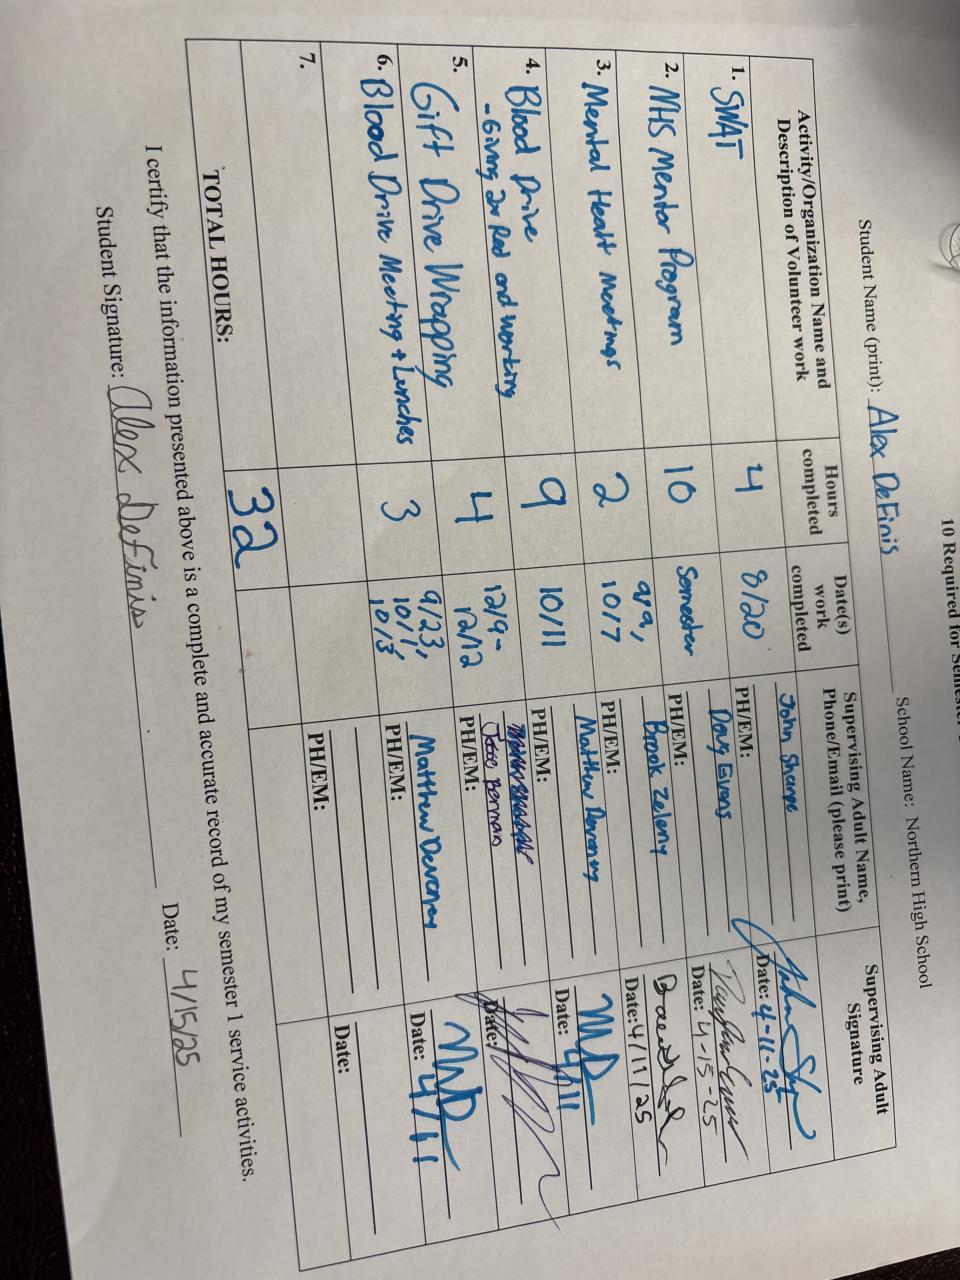 10 Required for Semester
Student Name (print): Alex DeFinis School Name: Northern High School
Activity/Organization Name and Description of Volunteer work
Hours completed
Date(s) work completed
Supervising Adult Name, Phone/Email (please print)
Supervising Adult Signature
1. SWAT
4
8/20
John Sharpe
PH/EM:
Date: 4-11-25
2. NHS Mentor Program
10
Semester
Doug Evans
PH/EM:
Date: 4-15-25
3. Mental Healt Meetings
2
9/9,
10/7
Brook Zeleny
PH/EM:
Date: 4/11/25
4. Blood Drive
- Giving 2x Red and working
9
10/11
Matthew Devenney
PH/EM:
MD
Date: 4/11
5. Gift Drive Wrapping
4
12/9-
12/12
PH/EM:
Date:
6. Blood Drive Meeting + Lunches
3
9/23,
10/1,
10/3
Matthew Devenney
PH/EM:
MD
Date: 4/11
7.
PH/EM:
Date:
TOTAL HOURS: 32
I certify that the information presented above is a complete and accurate record of my semester 1 service activities.
Student Signature: Alex DeFinis Date: 4/15/25